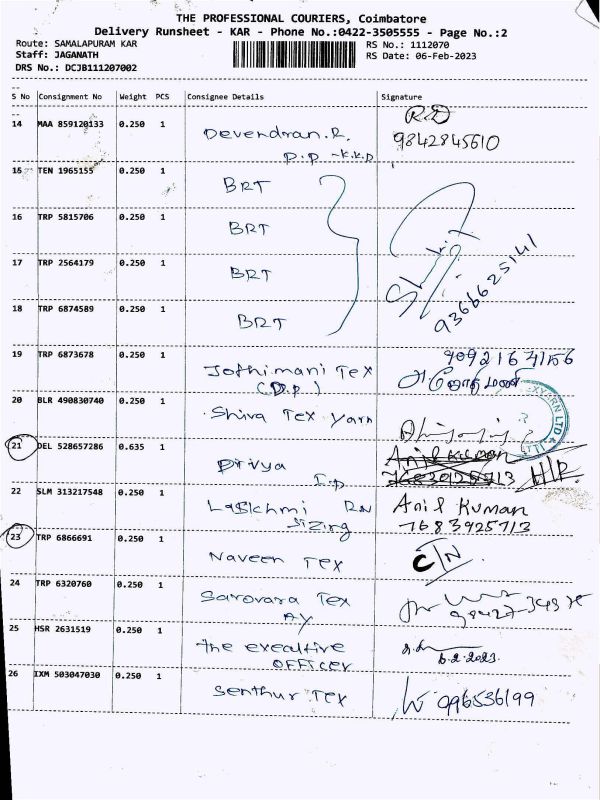 THE PROFESSIONAL COURIERS, Coimbatore
Delivery Runsheet - KAR - Phone No.:0422-3505555 - Page No.:2
Route: SAMALAPURAM KAR
RS No.: 1112070
Staff: JAGANATH
RS Date: 06-Feb-2023
DRS No.: DCJB111207002
S No Consignment No Weight PCS Consignee Details Signature
14 MAA 859120133 0.250 1 Devendran.R. R.D
D.P - K.K.P 9842845610
15 TEN 1965155 0.250 1 BRT
16 TRP 5815706 0.250 1 BRT
17 TRP 2564179 0.250 1 BRT 9366625141
18 TRP 6874589 0.250 1 BRT
19 TRP 6873678 0.250 1 Jothimani Tex
(D.P)
20 BLR 490830740 0.250 1 Shiva Tex Yarn
21 DEL 528657286 0.635 1 Divya Anil Kumar
I.P
22 SLM 313217548 0.250 1 Anil Kumar
Sizing 7683925713
23 TRP 6866691 0.250 1 Naveen Tex C/N
24 TRP 6320760 0.250 1 Sarovara Tex
AY
25 HSR 2631519 0.250 1 the execltive
OFFICER 6.2.2023.
26 IXM 503047030 0.250 1 Senthur Tex 996536199